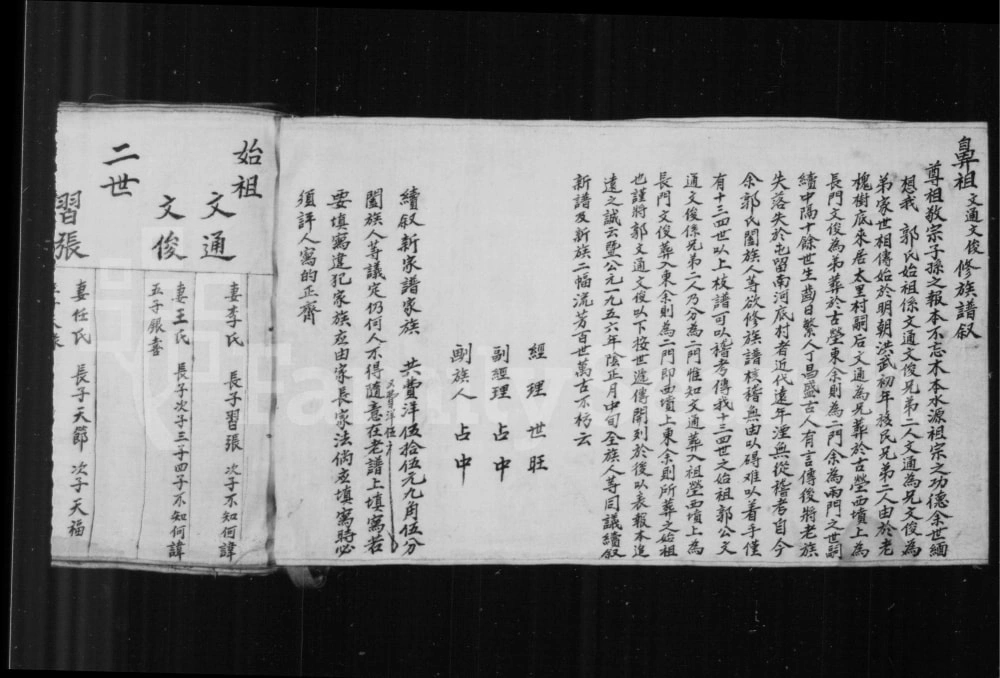 鼻祖文通文俊修族譜叙
尊祖敬宗子孫之報本不忘木本水源祖宗之功德余世緬
想我 郭氏始祖係文通文俊兄弟二人文通為兄文俊為
弟家世相傳始於明朝洪武初年移民兄弟二人由於老
槐樹底來居太里村嗣后文通為兄葬於古塋西墳上為
長門文俊為弟葬於古塋東余則為二門余為兩門之世詞
續中隔十餘世生齒日繁人丁昌盛古人有言傳後將老族
失落失於屯留南河底村者近代遠年湮無從稽考自今
余郭氏闔族人等欲修族譜核稽無由以碍难以着手僅
有十三四世以上枝譜可以稽考傳我十三四世之始祖郭公文
通文俊係兄弟二人乃分為二門惟知文通葬入祖塋西墳上為
長門文俊葬入東余則為二門即西墳上東余則所葬之始祖
也謹將郭文通文俊以下按世遞傳開列於後以表報本追
遠之誠云暨公元一九五六年陰正月中旬全族人等同議續叙
新譜及新族二幅流芳百世萬古不朽云
經理 世旺
副經理 占中
副族人 占中
續叙新家譜家族 共費洋伍拾伍元九角伍分
又費洋伍
闔族人等議定仍何人不得隨意在老譜上填寫若
要填寫違犯家族應由家長家法倘應填寫時必
須詳人寫的正齊
始祖
文通
妻李氏 長子習張 次子不知何諱
文俊
妻王氏 長子次子三子四子不知何諱
五子銀書
二世
習張
妻任氏 長子天節 次子天福